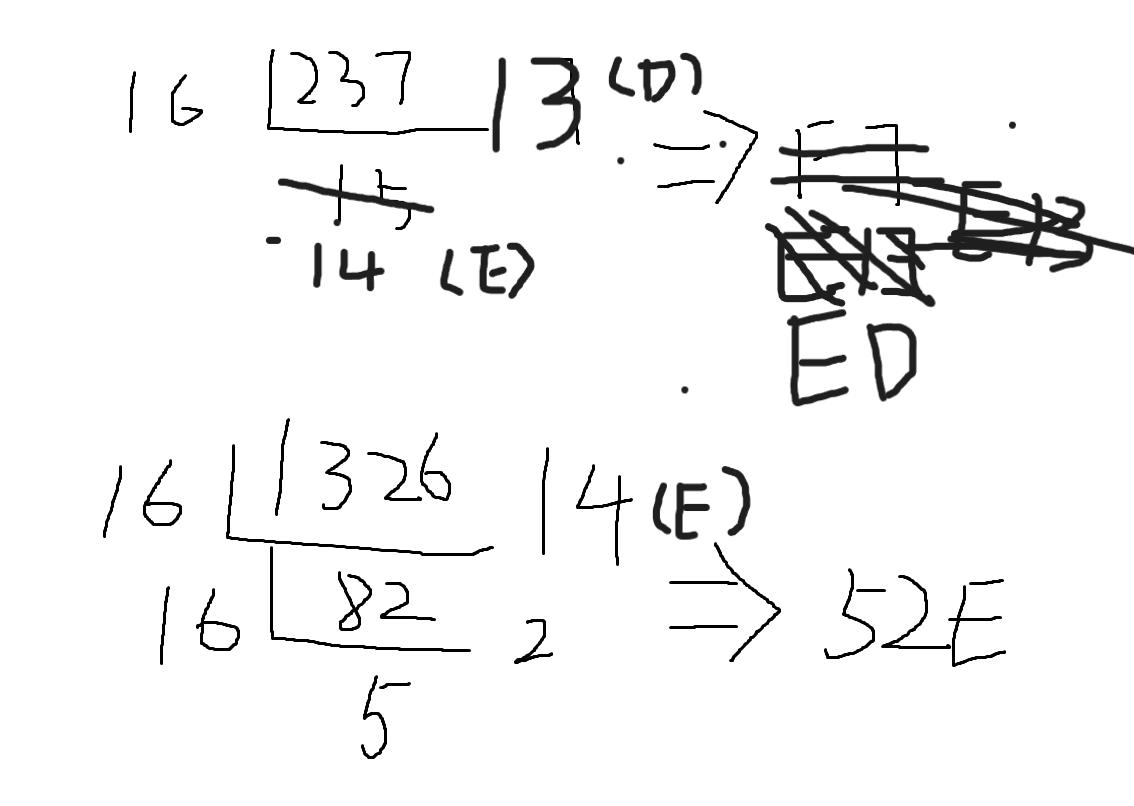 16 237 13 (D)
15
-14 (E) ⇒ ED
16 1326 14 (E)
16 82 2 ⇒ 52E
5